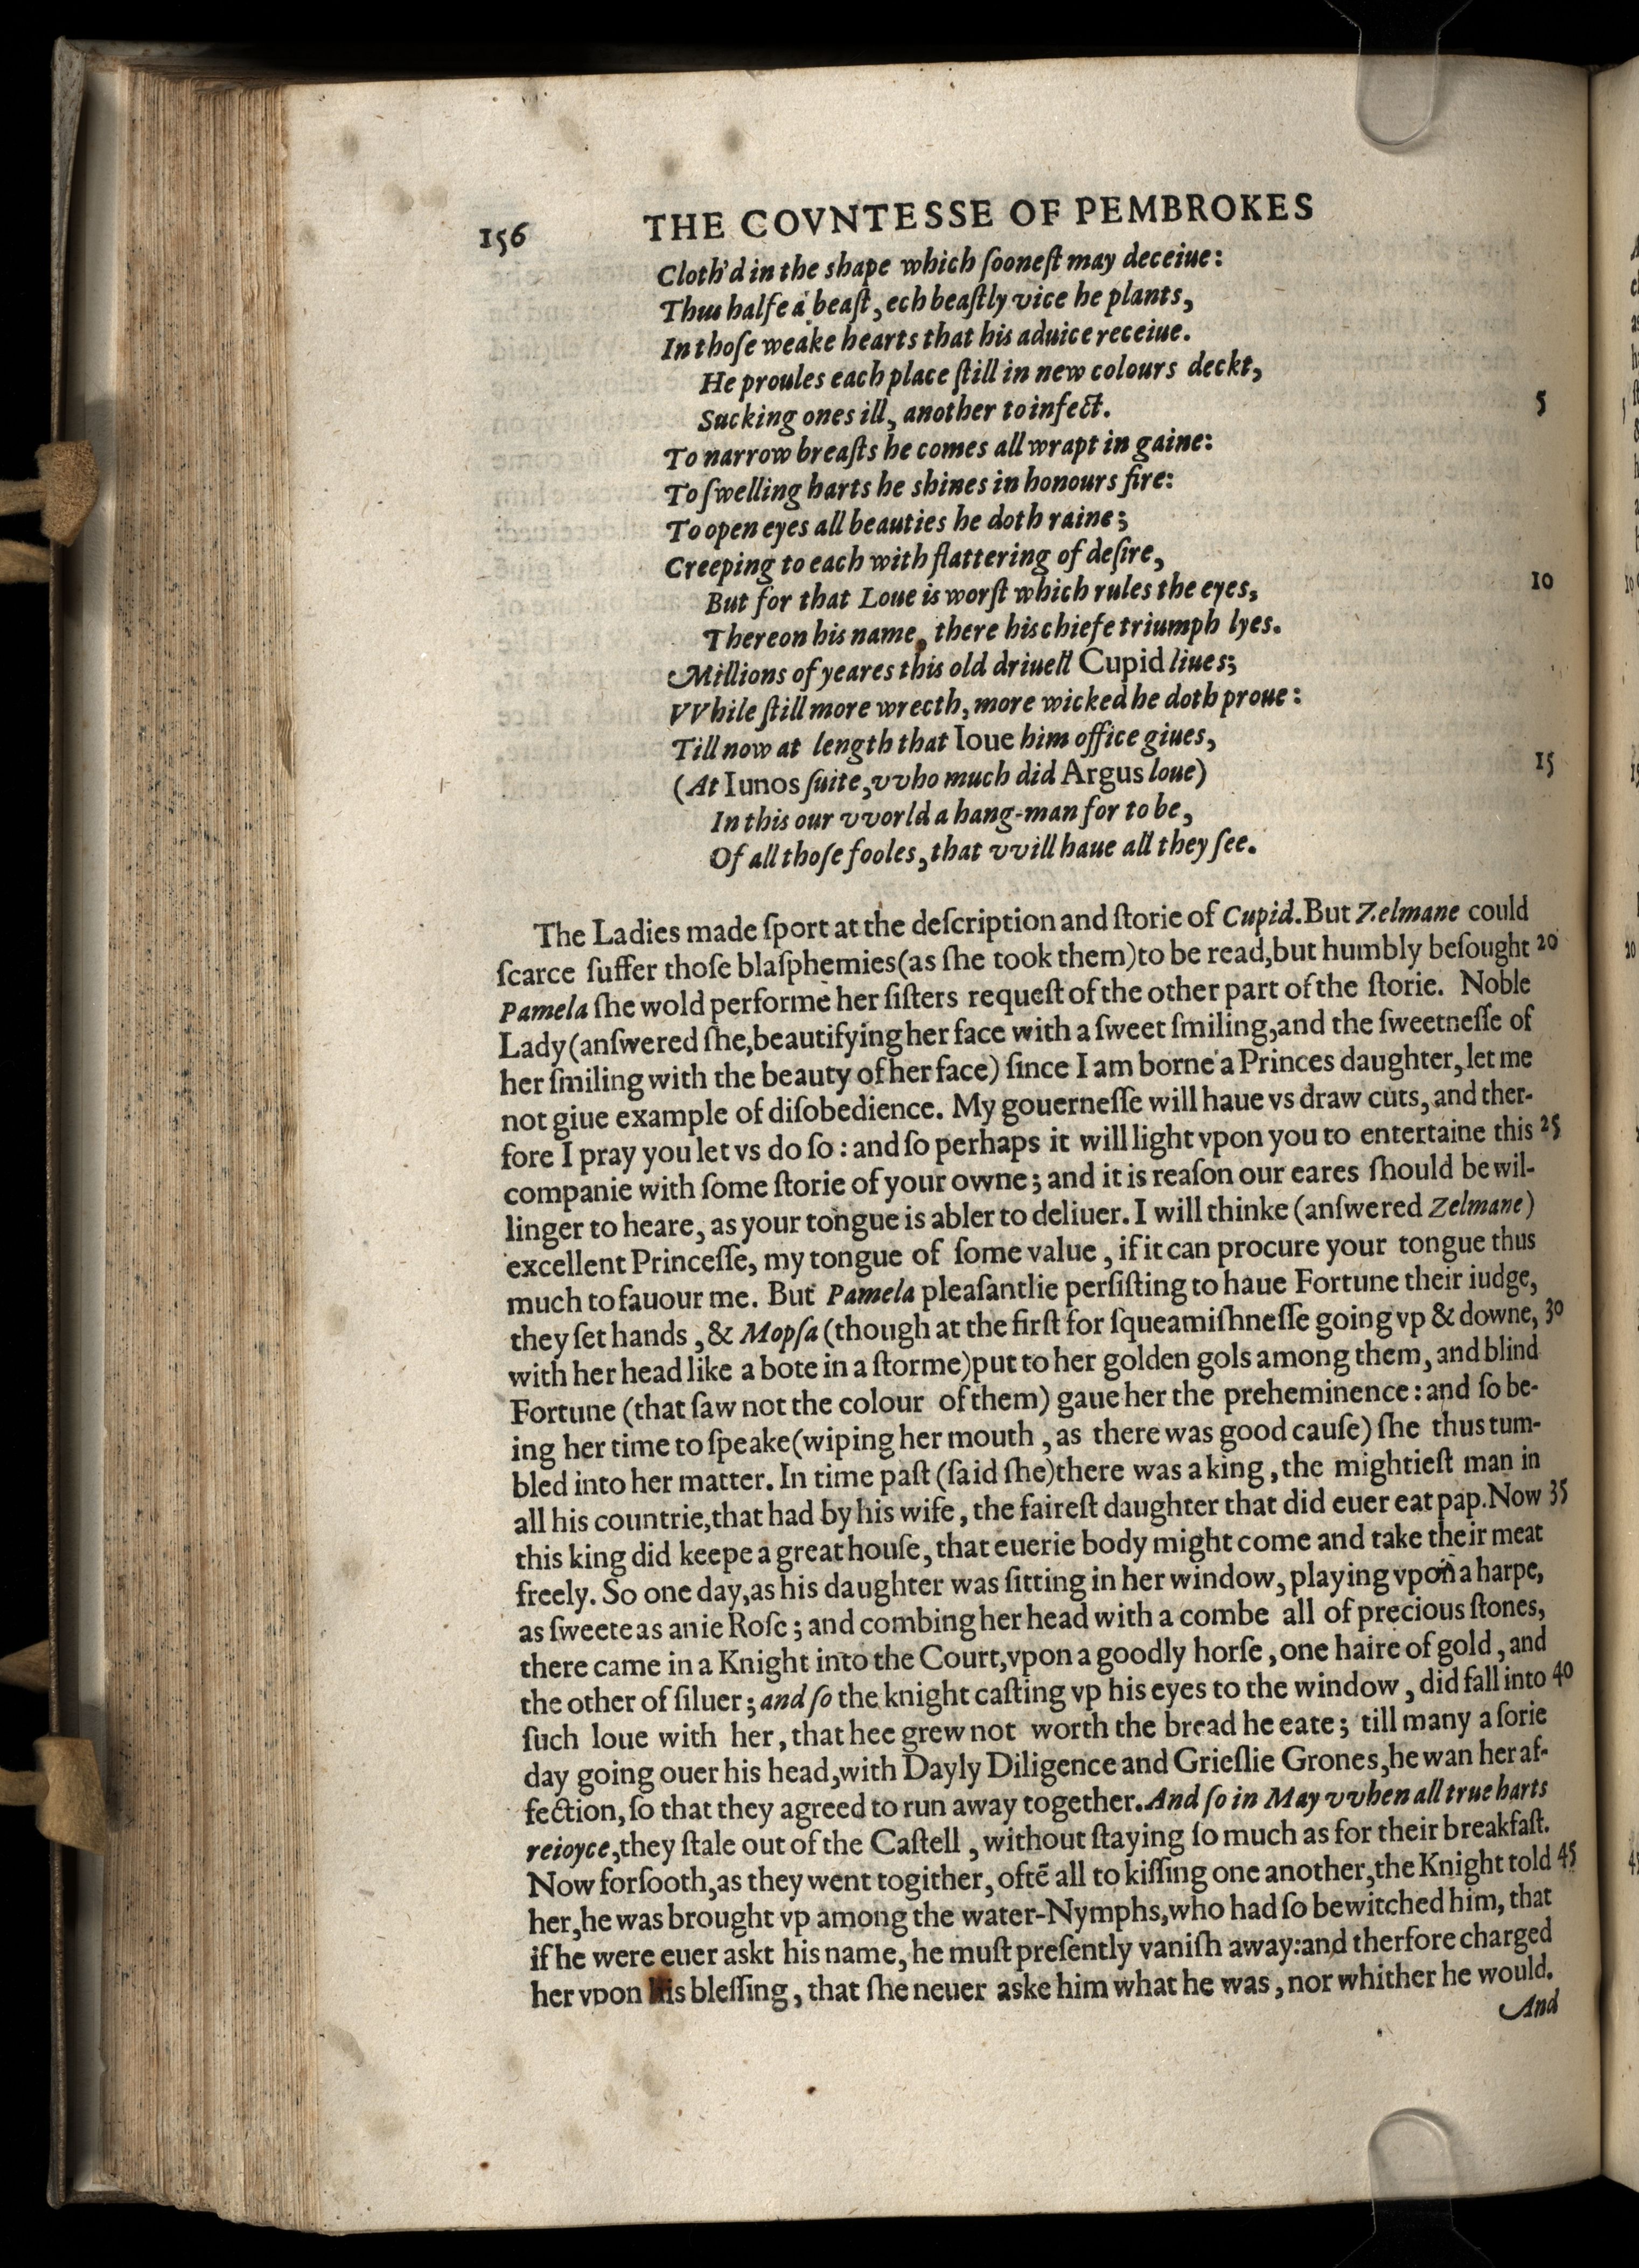 156 THE COVNTESSE OF PEMBROKES
Cloth'd in the shape which ſooneſt may deceiue:
Thus halfe a beaſt, ech beaſtly vice he plants,
In thoſe weake hearts that his aduice receiue.
He proules each place ſtill in new colours deckt,
Sucking ones ill, another to infect. 5
To narrow breaſts he comes all wrapt in gaine:
To ſwelling harts he shines in honours fire:
To open eyes all beauties he doth raine;
Creeping to each with flattering of deſire,
But for that Loue is worſt which rules the eyes, 10
Thereon his name, there his chiefe triumph lyes.
Millions of yeares this old driuell Cupid liues;
VVhile ſtill more wrecth, more wicked he doth proue:
Till now at length that Ioue him office giues,
(At Iunos ſuite, vvho much did Argus loue) 15
In this our vvorld a hang-man for to be,
Of all thoſe fooles, that vvill haue all they ſee.
The Ladies made ſport at the deſcription and ſtorie of Cupid. But Zelmane could
ſcarce ſuffer thoſe blaſphemies (as ſhe took them) to be read, but humbly beſought 20
Pamela ſhe wold performe her ſiſters requeſt of the other part of the ſtorie. Noble
Lady (anſwered ſhe, beautifying her face with a ſweet ſmiling, and the ſweetneſſe of
her ſmiling with the beauty of her face) ſince I am borne a Princes daughter, let me
not giue example of diſobedience. My gouerneſſe will haue vs draw cuts, and ther-
fore I pray you let vs do ſo: and ſo perhaps it will light vpon you to entertaine this 25
companie with ſome ſtorie of your owne; and it is reaſon our eares ſhould be wil-
linger to heare, as your tongue is abler to deliuer. I will thinke (anſwered Zelmane)
excellent Princeſſe, my tongue of ſome value, if it can procure your tongue thus
much to fauour me. But Pamela pleaſantlie perſiſting to haue Fortune their iudge,
they ſet hands, & Mopſa (though at the firſt for ſqueamiſhneſſe going vp & downe, 30
with her head like a bote in a ſtorme) put to her golden gols among them, and blind
Fortune (that ſaw not the colour of them) gaue her the preheminence: and ſo be-
ing her time to ſpeake (wiping her mouth, as there was good cauſe) ſhe thus tum-
bled into her matter. In time paſt (ſaid ſhe) there was a king, the mightieſt man in
all his countrie, that had by his wife, the faireſt daughter that did euer eat pap. Now 35
this king did keepe a great houſe, that euerie body might come and take their meat
freely. So one day, as his daughter was ſitting in her window, playing vpon a harpe,
as ſweete as anie Roſe; and combing her head with a combe all of precious ſtones,
there came in a Knight into the Court, vpon a goodly horſe, one haire of gold, and
the other of ſiluer; and ſo the knight caſting vp his eyes to the window, did fall into 40
ſuch loue with her, that hee grew not worth the bread he eate; till many a ſorie
day going ouer his head, with Dayly Diligence and Grieſlie Grones, he wan her af-
fection, ſo that they agreed to run away together. And ſo in May vvhen all true harts
reioyce, they ſtale out of the Caſtell, without ſtaying ſo much as for their breakfaſt.
Now forſooth, as they went togither, oftẽ all to kiſſing one another, the Knight told 45
her, he was brought vp among the water-Nymphs, who had ſo bewitched him, that
if he were euer askt his name, he muſt preſently vaniſh away: and therfore charged
her vpon his bleſſing, that ſhe neuer aske him what he was, nor whither he would.
And